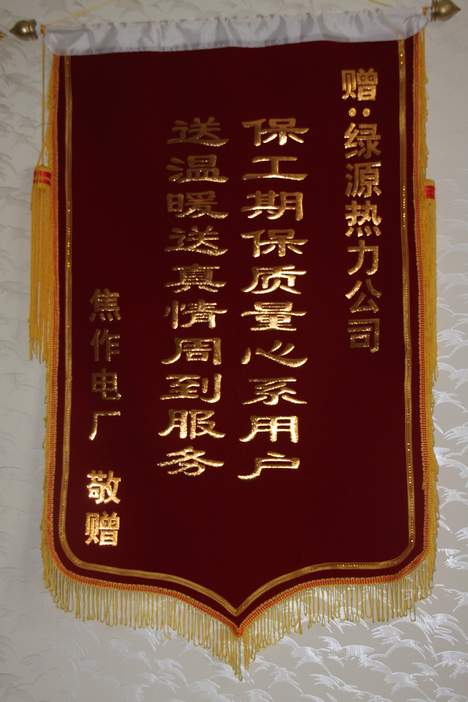 赠:绿源热力公司
保工期保质量心系用户
送温暖送真情周到服务
焦作电厂 敬赠